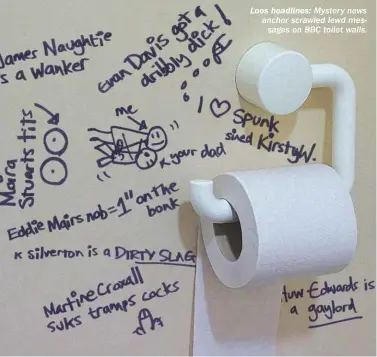 Loos headlines: Mystery news
anchor scrawled lewd mes-
sages on BBC toilet walls.
James Naughtie
is a Wanker
Evan Davis got a
dribbly dick!
I ♡
Spunk
sined KirstyW.
me
your dad
Moira
Stuarts tits
Eddie Mairs nob = 1" on the
bonk
k Silverton is a DIRTY SLAG
Martine Croxall
suks tramps cocks
Huw Edwards is
a gaylord